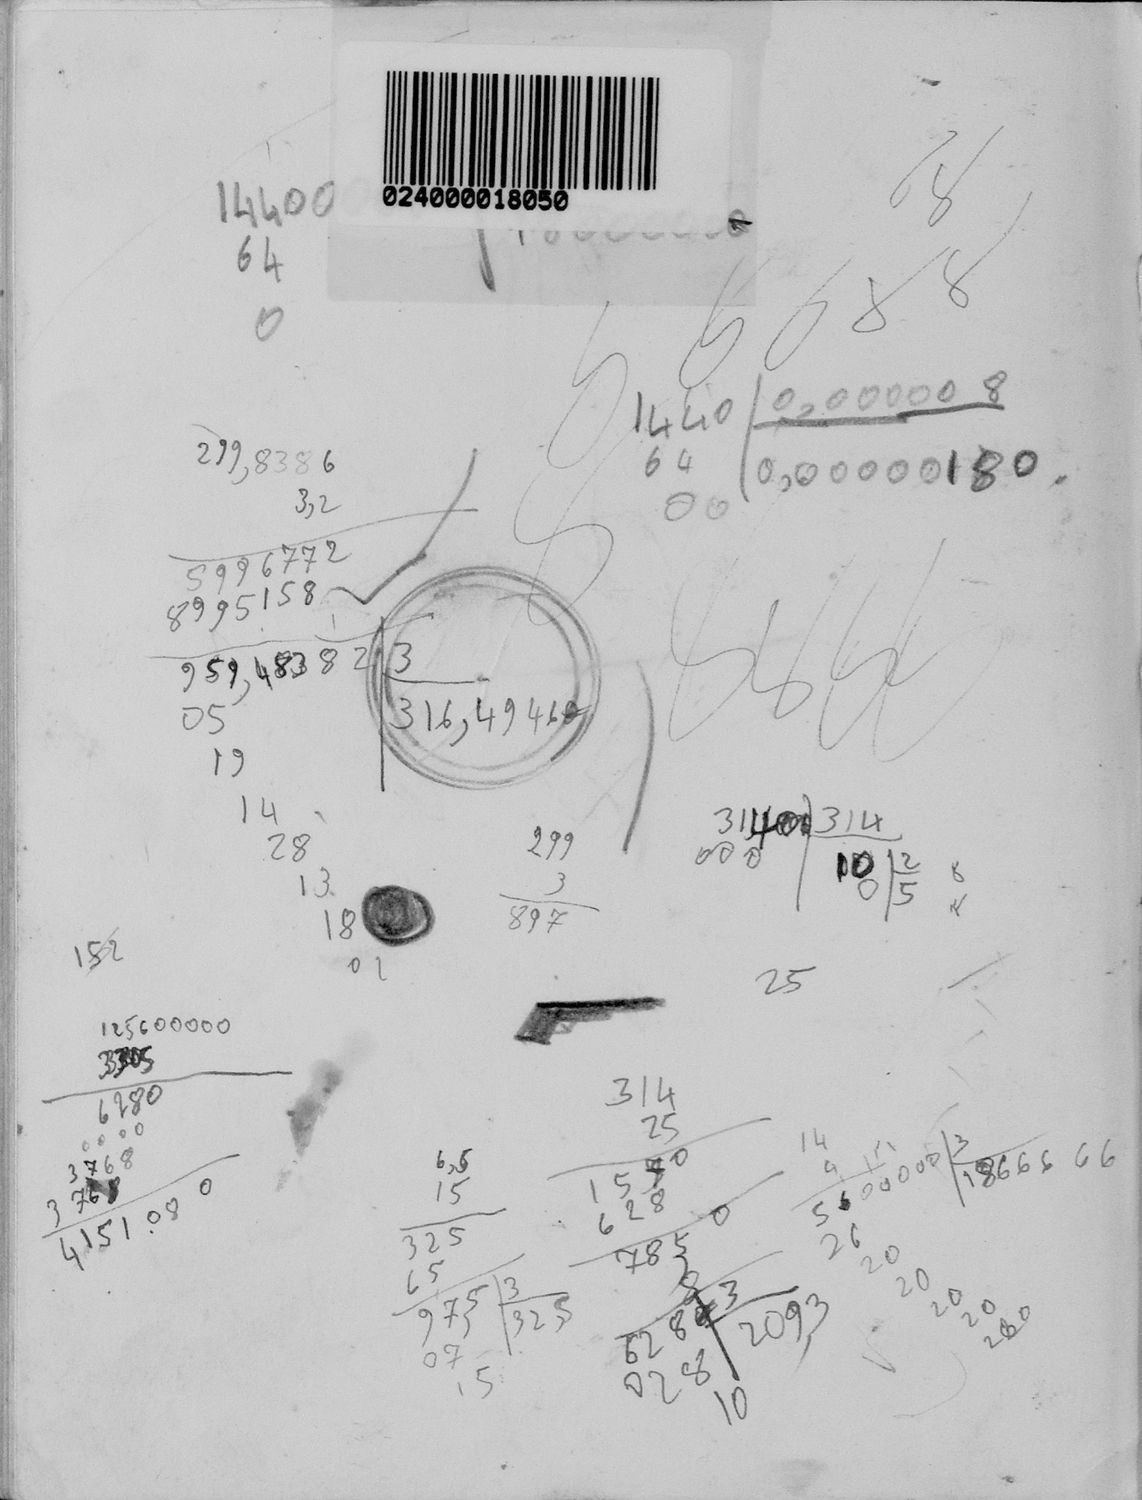 024000018050
14400
64
0
1440 | 0,000008
64 | 0,00000180.
00
299,8386
3,2
5996772
8995158
959,48382 | 3
316,4946
05
19
14
28
13
18
02
299
3
897
31400 | 314
000 | 10 | 2
0 | 5
152
25
125600000
3305
6280
0000
3768
3768
4151.080
6,5
15
325
65
975 | 3
07 | 325
15
314
25
1570
628
7850
8
6280 | 3
028 | 2093
10
14
4
5600000 | 3
26 | 18666 66
20
20
20
20
200